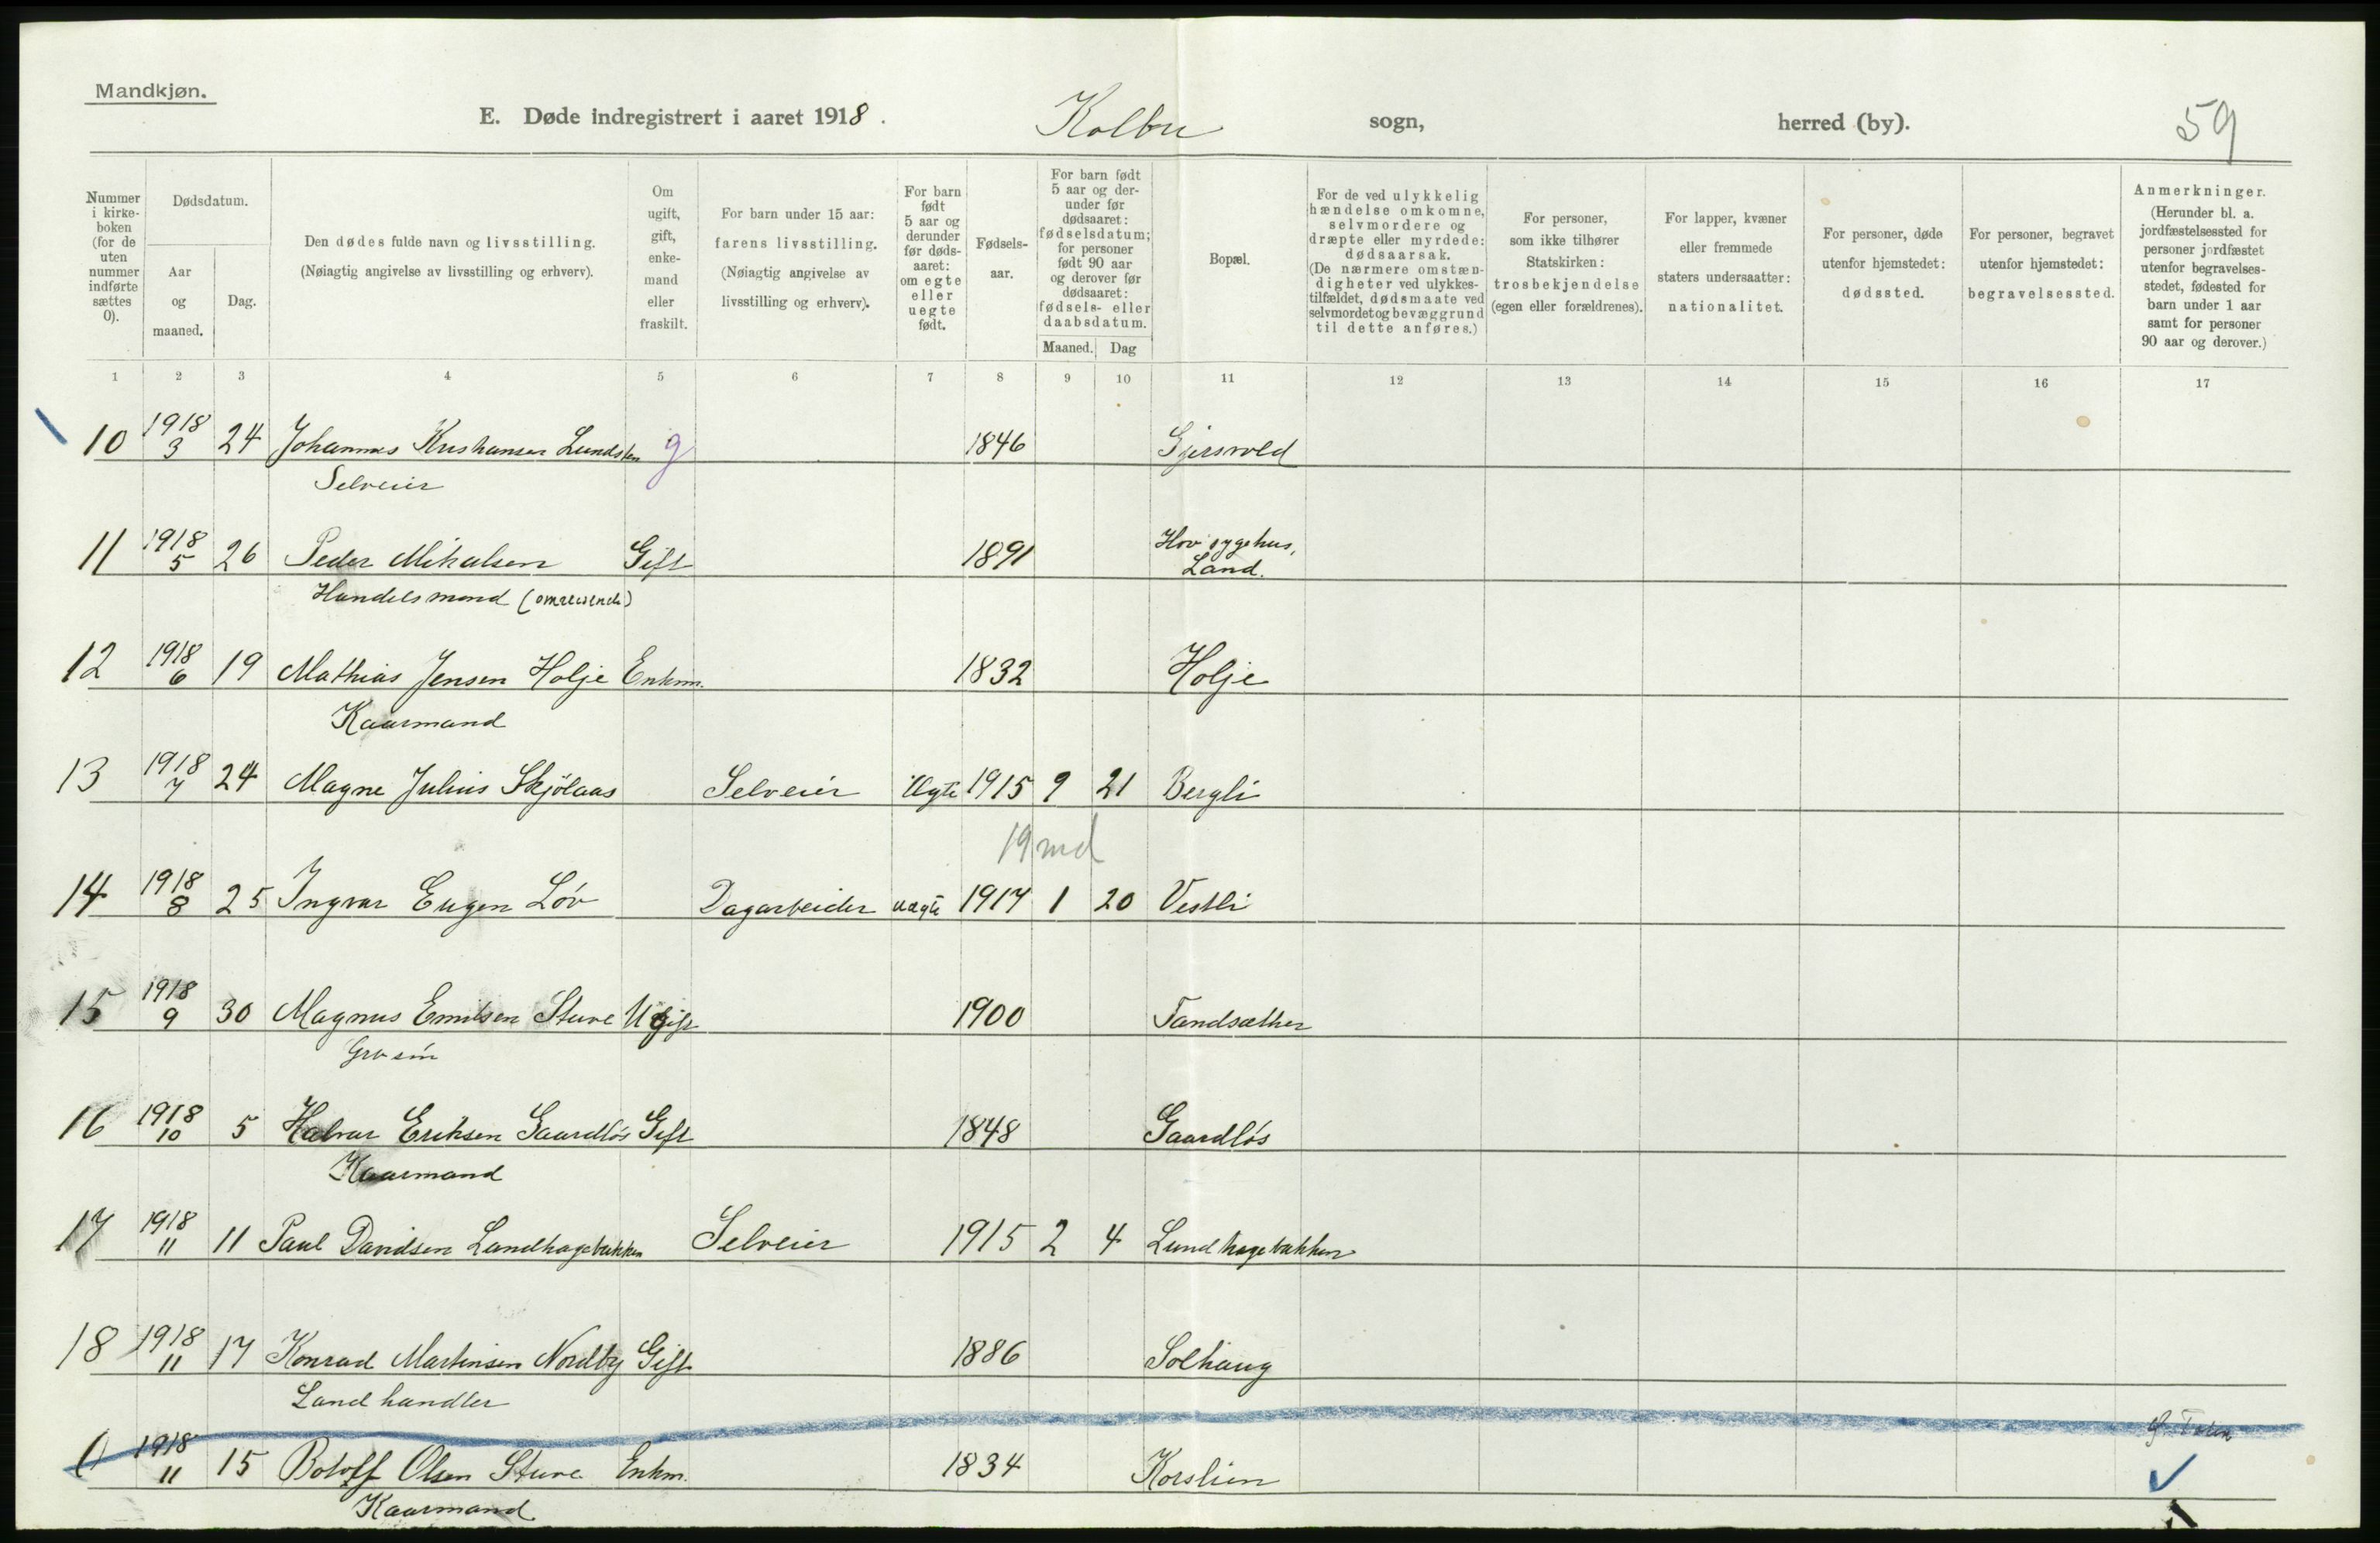 Mandkjøn.
E. Døde indregistrert i aaret 1918. Kolbu sogn, herred (by). 59
Nummer i kirke-boken (for de uten nummer indførte sættes 0).
Dødsdatum.
Aar og maaned.
Dag.
Den dødes fulde navn og livsstilling.
(Nøiagtig angivelse av livsstilling og erhverv).
Om ugift, gift, enke-mand eller fraskilt.
For barn under 15 aar: farens livsstilling.
(Nøiagtig angivelse av livsstilling og erhverv).
For barn født 5 aar og derunder før døds-aaret: om egte eller uegte født.
Fødsels-aar.
For barn født 5 aar og der-under før dødsaaret: fødselsdatum; for personer født 90 aar og derover før dødsaaret: fødsels- eller daabsdatum.
Maaned. Dag
Bopæl.
For de ved ulykkelig hændelse omkomne, selvmordere og dræpte eller myrdede: dødsaarsak.
(De nærmere omstæn-digheter ved ulykkes-tilfældet, dødsmaate ved selvmordet og bevæggrund til dette anføres.)
For personer, som ikke tilhører Statskirken: trosbekjendelse (egen eller forældrenes).
For lapper, kvæner eller fremmede staters undersaatter: nationalitet.
For personer, døde utenfor hjemstedet: dødssted.
For personer, begravet utenfor hjemstedet: begravelsessted.
Anmerkninger.
(Herunder bl. a. jordfæstelsessted for personer jordfæstet utenfor begravelses-stedet, fødested for barn under 1 aar samt for personer 90 aar og derover.)
1 2 3 4 5 6 7 8 9 10 11 12 13 14 15 16 17
10 1918 3 24 Johannes Kristiansen Lundsten g 1846 Gjersvold
Selveier
11 1918 5 26 Peder Mikalsen Gift 1891 Hov sygehus, Land.
Handelsmand (omreisende)
12 1918 6 19 Mathias Jensen Holje Enkm. 1832 Holje
Kaarmand
13 1918 7 24 Magne Julius Skjölaas Selveier Ægte 1915 9 21 Bergli
19 md
14 1918 8 25 Ingvar Eugen Löv Dagarbeider uægte 1917 1 20 Vestli
15 1918 9 30 Magnus Emilsen Sture Ugift 1900 Tandsæther
Grv sön
16 1918 10 5 Halvar Eriksen Gaardlös Gift 1848 Gaardlös
Kaarmand
17 1918 11 11 Paul Davidsen Lundhagebakken Selveier 1915 2 4 Lundhagebakken
18 1918 11 17 Konrad Martinsen Nordby Gift 1886 Solhaug
Landhandler
0 1918 11 15 Botolf Olsen Sture Enkm. 1834 Korslien
Kaarmand